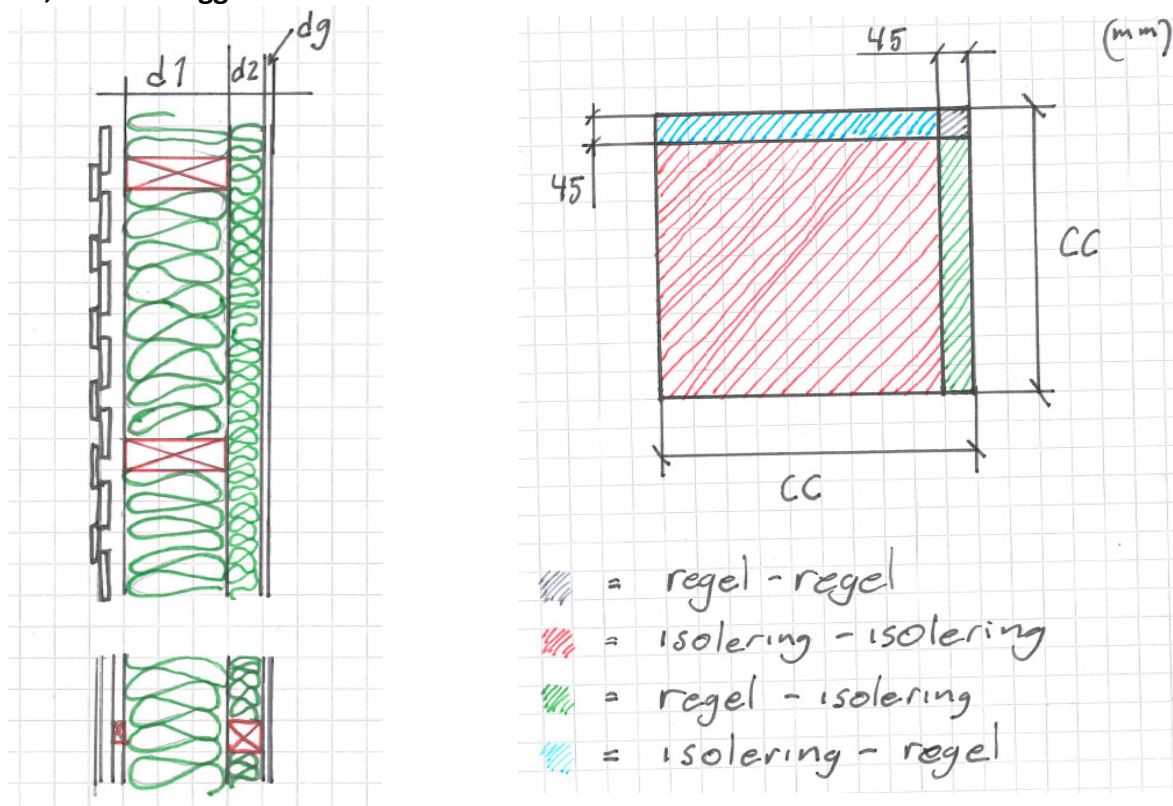 dg
d1
d2
45
(mm)
45
CC
CC
= regel - regel
= isolering - isolering
= regel - isolering
= isolering - regel